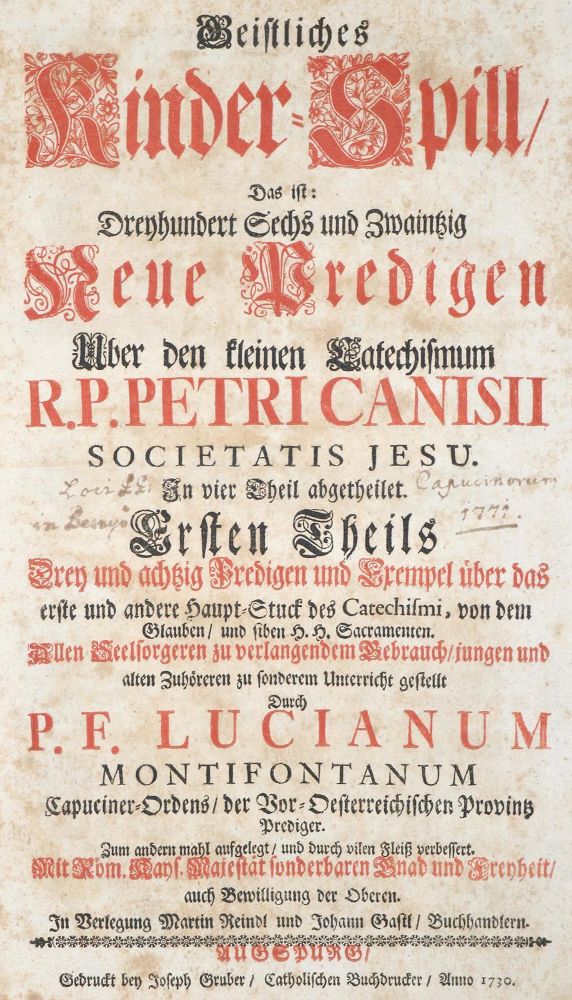 Geiſtliches
Kinder-Spill/
Das iſt:
Dreyhundert Sechs und Zwaintzig
Neue Predigen
Uber den kleinen Catechiſmum
R.P. PETRI CANISII
SOCIETATIS JESU.
In vier Theil abgetheilet.
Capucinorum
1771.
Erſten Theils
Drey und achtzig Predigen und Exempel über das
erſte und andere Haupt-Stuck des Catechiſmi, von dem
Glauben/ und ſiben H. H. Sacramenten.
Allen Seelſorgeren zu verlangendem Gebrauch/ jungen und
alten Zuhöreren zu ſonderem Unterricht geſtellt
Durch
P. F. LUCIANUM
MONTIFONTANUM
Capuciner-Ordens/ der Vor-Oeſterreichiſchen Provintz
Prediger.
Zum andern mahl aufgelegt/ und durch vilen Fleiß verbeſſert.
Mit Röm. Kayſ. Majeſtät ſonderbaren Gnad und Freyheit/
auch Bewilligung der Oberen.
In Verlegung Martin Reindl und Johann Gaſtl/ Buchhandlern.
AUGSPURG/
Gedruckt bey Joſeph Gruber/ Catholiſchen Buchdrucker/ Anno 1730.